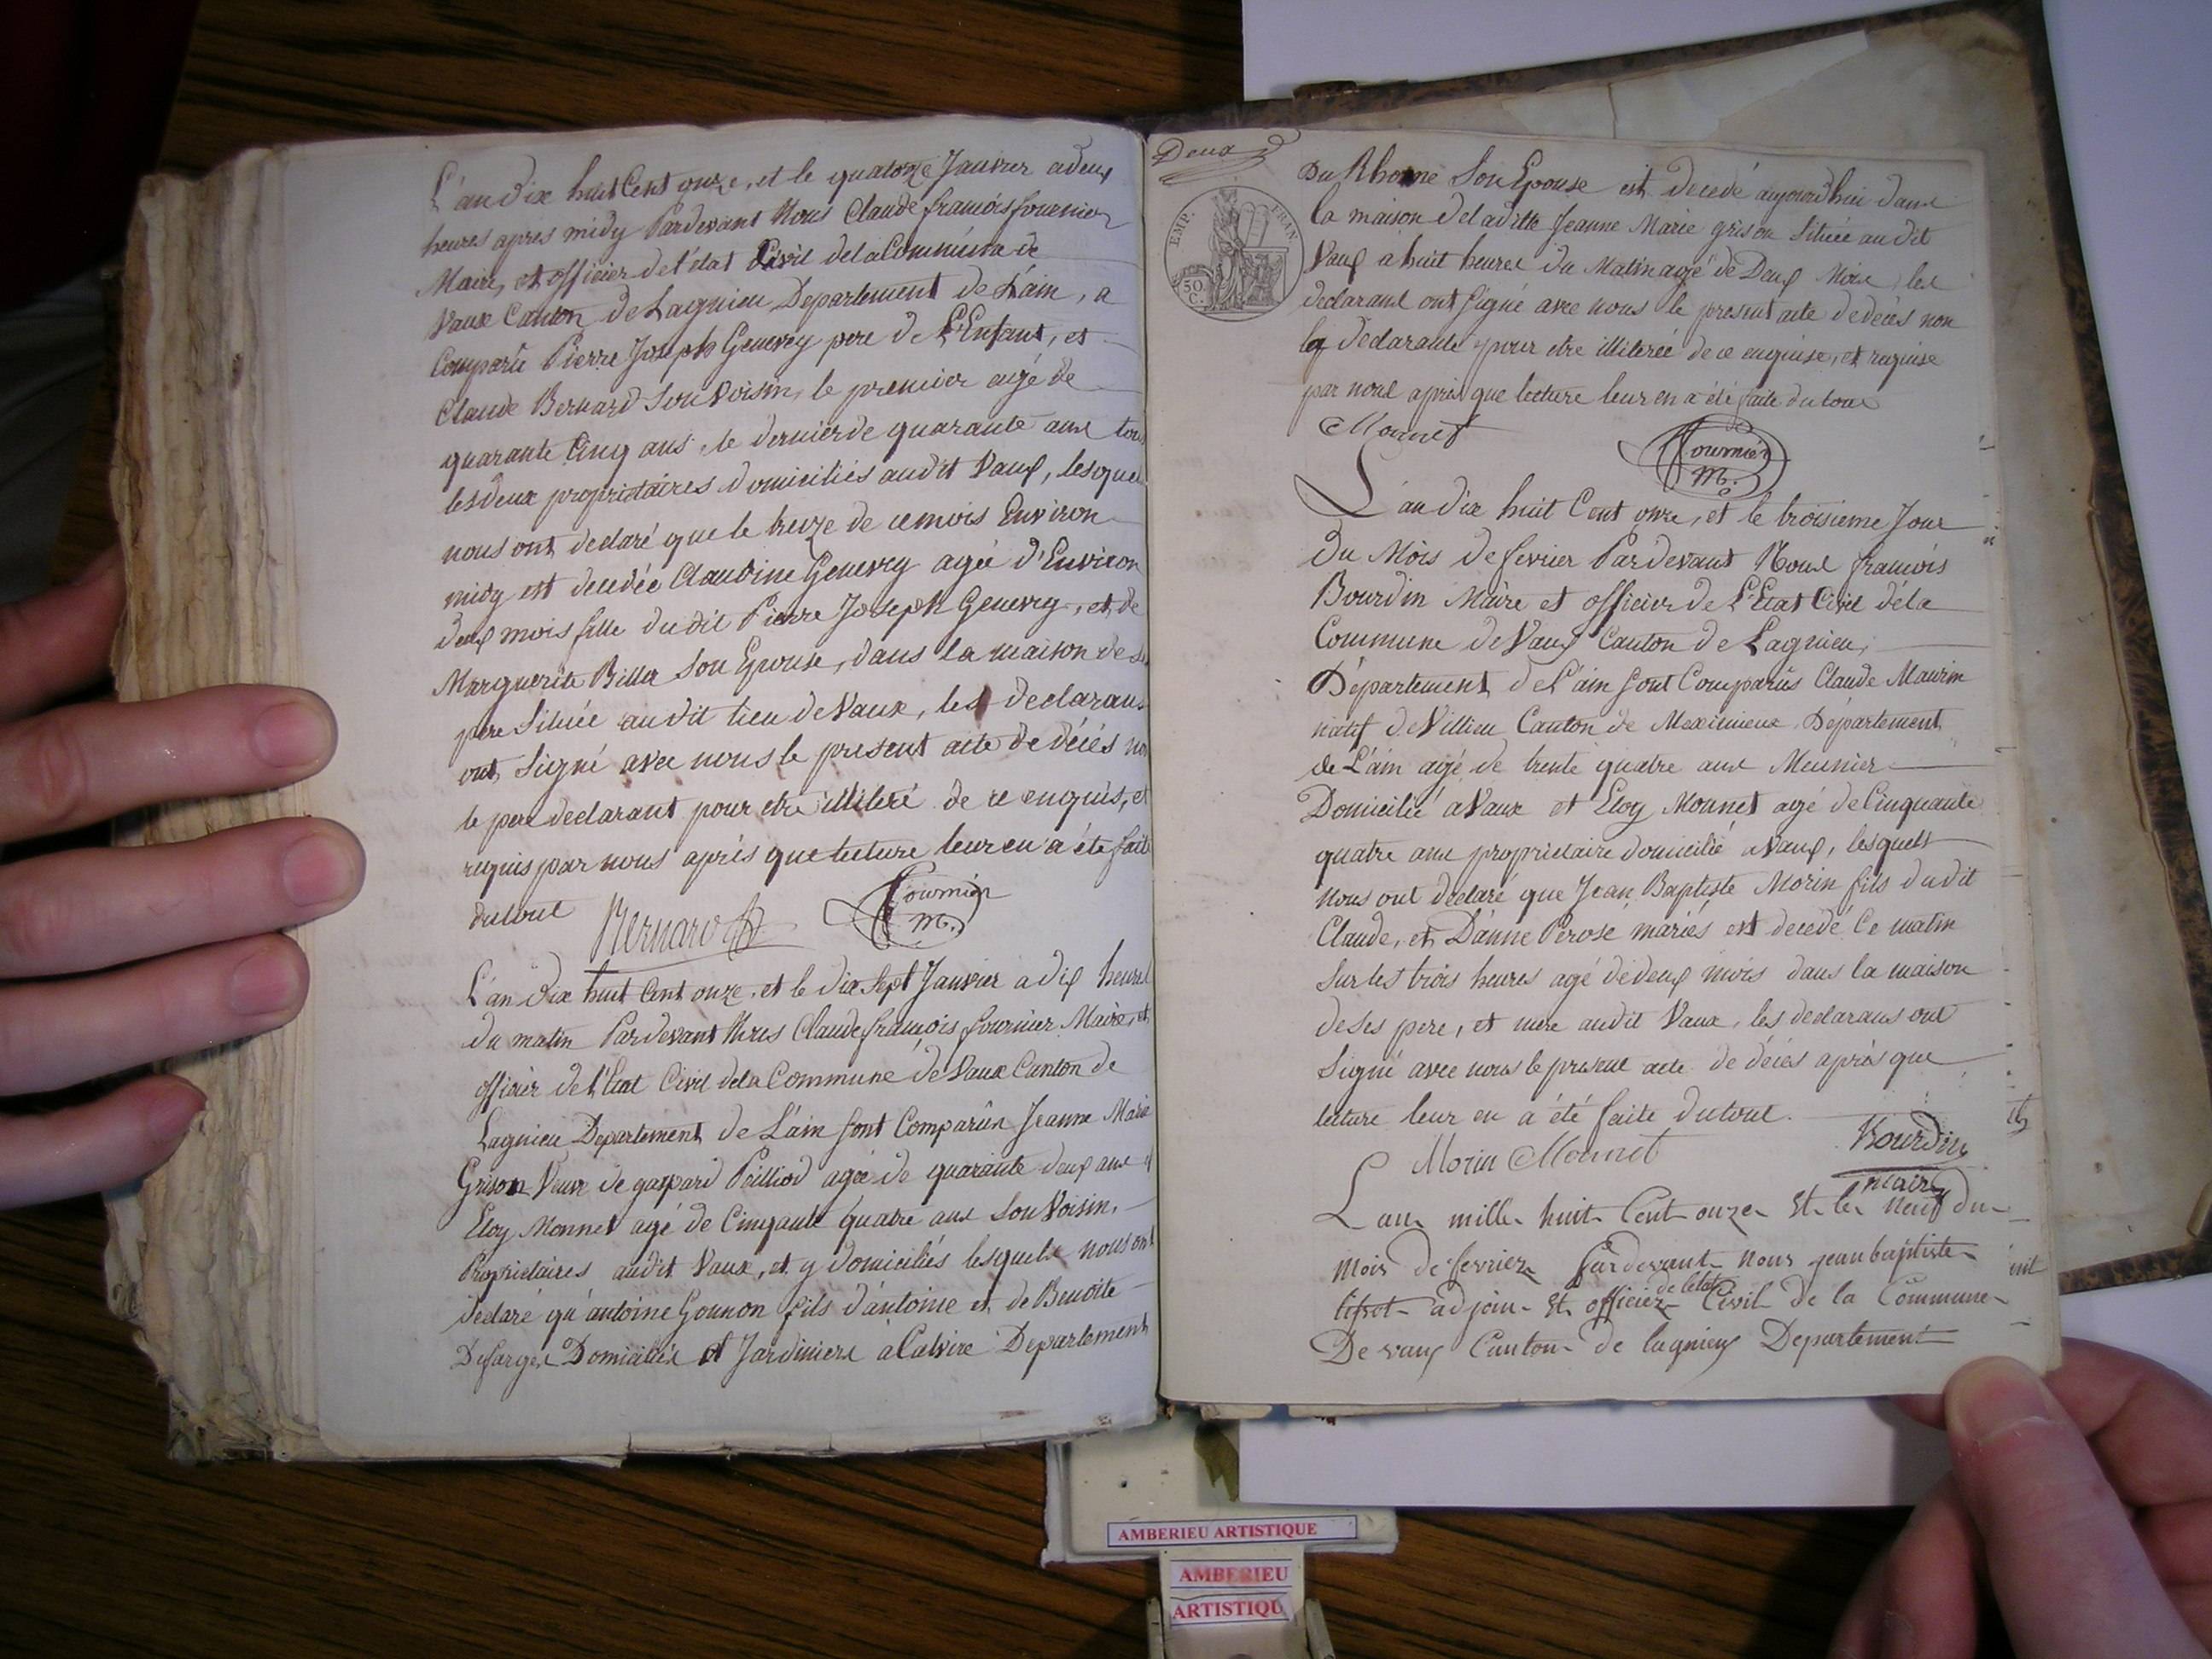 L'an dix huit Cent onze, et le quatorze Janvier a deux
heures apres midy Pardevant Nous Claude françois fournier
Maire, et officier de l'état Civil de la Commune de
Vaux Canton de Lagnieu Departement de L'ain, a
Comparû Pierre Joseph Genevey pere de L'Enfant, et
Claude Bernard Son Voisin, le premier agé de
quarante Cinq ans, le dernier de quarante ans tous
les deux proprietaires domiciliés audit Vaux, lesquels
nous ont declaré que le treize de ce mois Environ
midy est decedée Claudine Genevey agée d'Environ
deux mois fille du dit Pierre Joseph Genevey, et de
Marguerite Billa Son Epouse, dans la maison de
pere Située au dit lieu de Vaux, les declarans
ont Signé avec nous le present acte de décés non
le pere declarant pour etre illiteré de ce enquis, et
requis par nous aprés que lecture leur en a été faite
du tout Bernard Fournier
M.
L'an dix huit Cent onze, et le dix Sept Janvier a dix heures
du matin Pardevant Nous Claude françois fournier Maire, et
officier de l'Etat Civil de la Commune de Vaux Canton de
Lagnieu Departement de L'ain Sont Comparûs Jeanne Marie
Grison Veuve de gaspard Peilliod agée de quarante deux ans et
Eloy Monnet agé de Cinquante quatre ans Son Voisin,
Proprietaires audit Vaux, et y domiciliés lesquels nous ont
declaré qu'antoine Gonnon fils d'antoine et de Benoite
Desarges Domiciliés et Jardiniers a Calvire Departement
Deux
EMP. FRAN.
50.
C.
Du Rhone Son Epouse est decedé aujourd'hui dans
la maison de la ditte Jeanne Marie grison Située au dit
Vaux a huit heures du Matin agé de Deux Mois, les
declarans ont Signé avec nous le present acte de décés non
la declarante pour etre illiterée de ce enquise, et requise
par nous aprés que lecture leur en a été faite du tout
Monnet Fournier
M.
L'an dix huit Cent onze, et le troisieme Jour
du Mois de fevrier Pardevant Nous françois
Bourdin Maire et officier de L'Etat Civil de la
Commune de Vaux Canton de Lagnieu,
Département de L'ain Sont Comparûs Claude Maurin
natif de Villieu Canton de Meximieux Département
de L'ain agé de trente quatre ans Meunier
Domicilié a Vaux et Eloy Monnet agé de Cinquante
quatre ans proprietaire domicilié a Vaux, lesquels
nous ont déclaré que Jean Baptiste Morin fils du dit
Claude, et D'anne Perose mariés est decedé Ce matin
Sur les trois heures agé de deux mois dans la maison
de ses pere, et mere audit Vaux, les declarans ont
Signé avec nous le present acte de décés aprés que
lecture leur en a été faite du tout.
Morin Monnet Bourdin
maire
L'an mille huit Cent onze Et le Neuf du
Mois de fevrier Pardevant Nous jean baptiste
adjoin Et officier de l'etat Civil de la Commune
De vaux Canton de lagnieu Departement
AMBERIEU ARTISTIQUE
AMBERIEU
ARTISTIQU